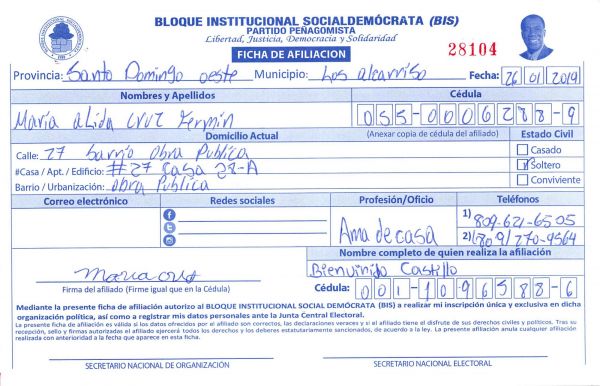 BLOQUE INSTITUCIONAL SOCIALDEMÓCRATA (BIS)
PARTIDO PEÑAGOMISTA
Libertad, Justicia, Democracia y Solidaridad
FICHA DE AFILIACION
28104
Provincia: Santo Domingo oeste Municipio: Los alcarriso Fecha: 26 01 2019
Nombres y Apellidos Cédula
María alida cruz Fermin 055-0006288-9
Domicilio Actual (Anexar copia de cédula del afiliado) Estado Civil
Calle: 27 barrio Obra Publica Casado
#Casa / Apt. / Edificio: #27 casa 28-A Soltero
Barrio / Urbanización: Obra Publica Conviviente
Correo electrónico Redes sociales Profesión/Oficio Teléfonos
Ama de casa
1) 809-621-6505
2) (809) 270-9564
Nombre completo de quien realiza la afiliación
Maria cruz Bienvenido Castillo
Firma del afiliado (Firme igual que en la Cédula) Cédula: 001-1096588-6
Mediante la presente ficha de afiliación autorizo al BLOQUE INSTITUCIONAL SOCIAL DEMÓCRATA (BIS) a realizar mi inscripción única y exclusiva en dicha
organización política, así como a registrar mis datos personales ante la Junta Central Electoral.
La presente ficha de afiliación es válida si los datos ofrecidos por el afiliado son correctos, las declaraciones veraces y si el afiliado tiene el disfrute de sus derechos civiles y políticos. Tras su
recepción, sello y firmas autorizadas el afiliado ejercerá todos los derechos y los deberes estatutariamente sancionados, de acuerdo a la ley. La presente afiliación anula cualquier afiliación
realizada con anterioridad a la fecha que aparece en esta ficha.
SECRETARIO NACIONAL DE ORGANIZACIÓN SECRETARIO NACIONAL ELECTORAL